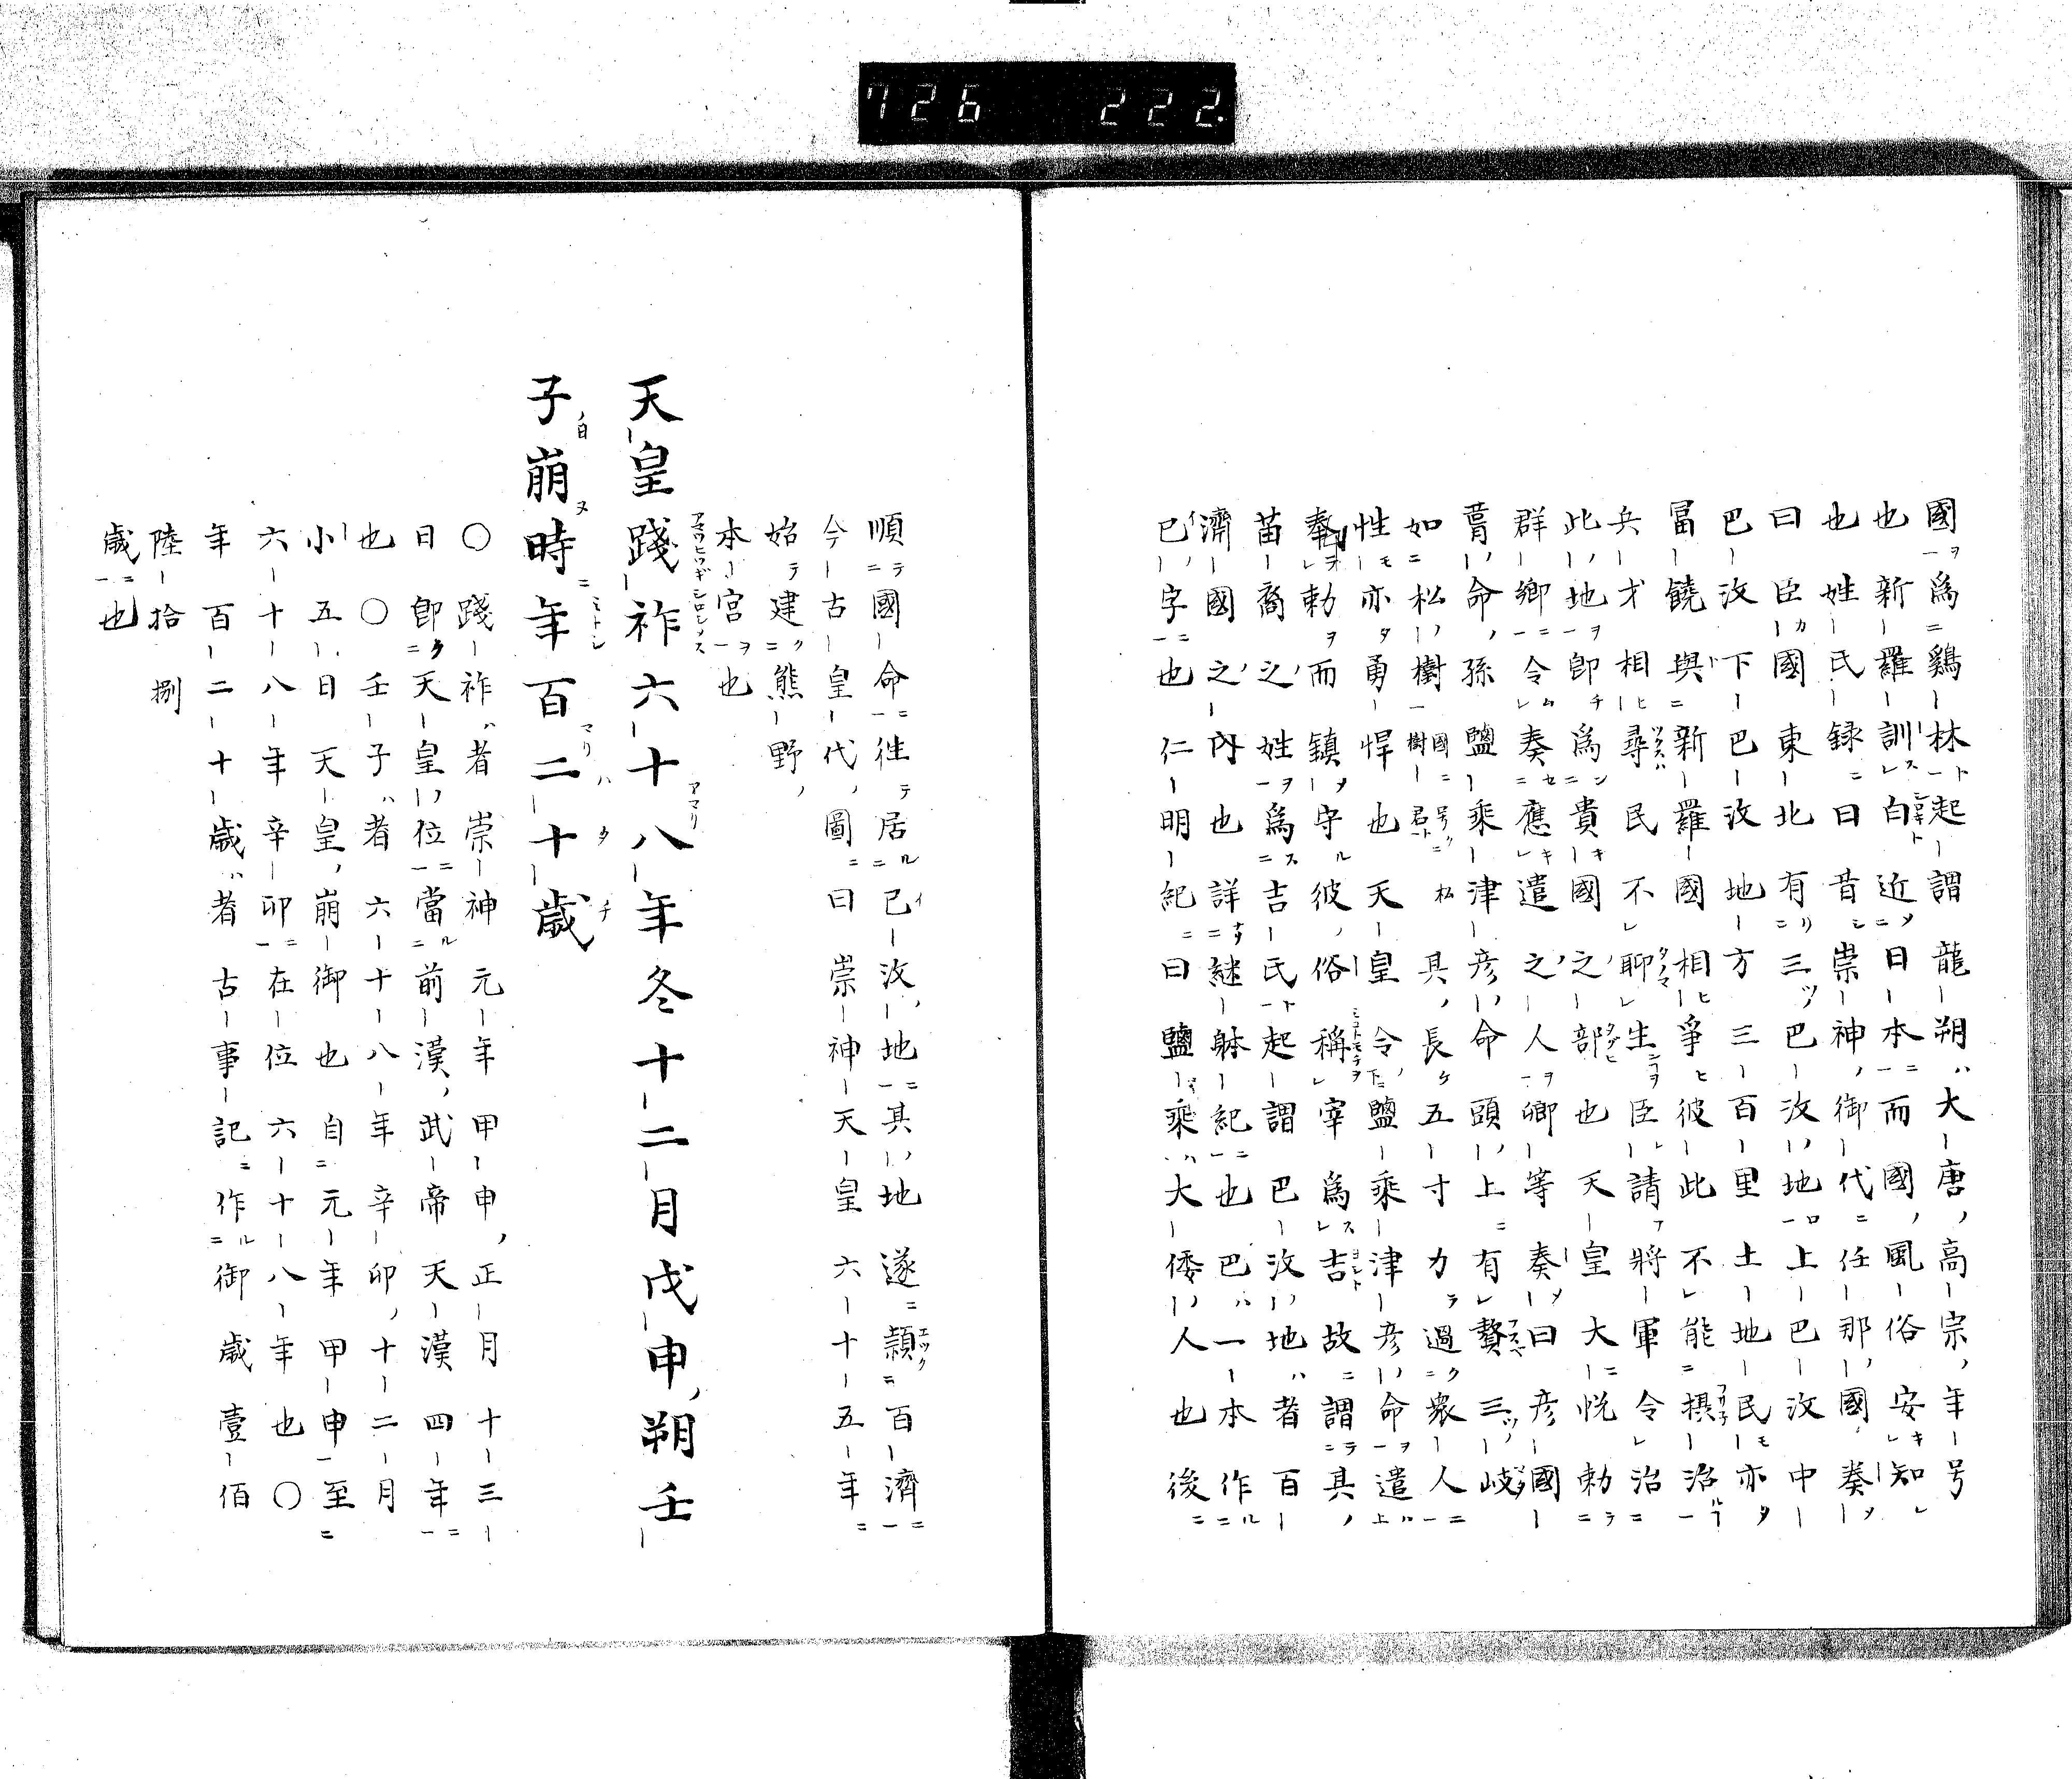 726 222.
國爲鷄林起謂龍朔大唐高宗年号
也新羅訓白近日本而國風俗安知
也姓氏録曰昔崇神御代任那國奏
曰臣國東北有三巴汶地上巴汶中
巴汶下巴汶地方三百里土地民亦
冨饒與新羅國相爭彼此不能摂治
兵才相尋民不聊生臣請將軍令治
此地即爲貴國之部也天皇大悦勅
群卿令奏應遣之人卿等奏曰彦國
葺命孫鹽乘津彦命頭上有贅三岐
如松樹國号松樹君其長五寸力過衆人
性亦勇悍也天皇令鹽乘津彦命遣
奉勅而鎮守彼俗稱宰爲吉故謂其
苗裔之姓爲吉氏起謂巴汶地者百
濟國之内也詳継躰紀也巴一本作
已字也仁明紀曰鹽乘大倭人也後
順國命往居已汶地其地遂顙百濟
今古皇代圖曰崇神天皇六十五年
始建熊野
本宮也
天皇踐祚六十八年冬十二月戊申朔壬
子崩時年百二十歳
〇踐祚者崇神元年甲申正月十三
日即天皇位當前漢武帝天漢四年
也〇壬子者六十八年辛卯十二月
小五日天皇崩御也自元年甲申至
六十八年辛卯在位六十八年也〇
年百二十歳者古事記作御歳壹佰
陸拾捌
歳也